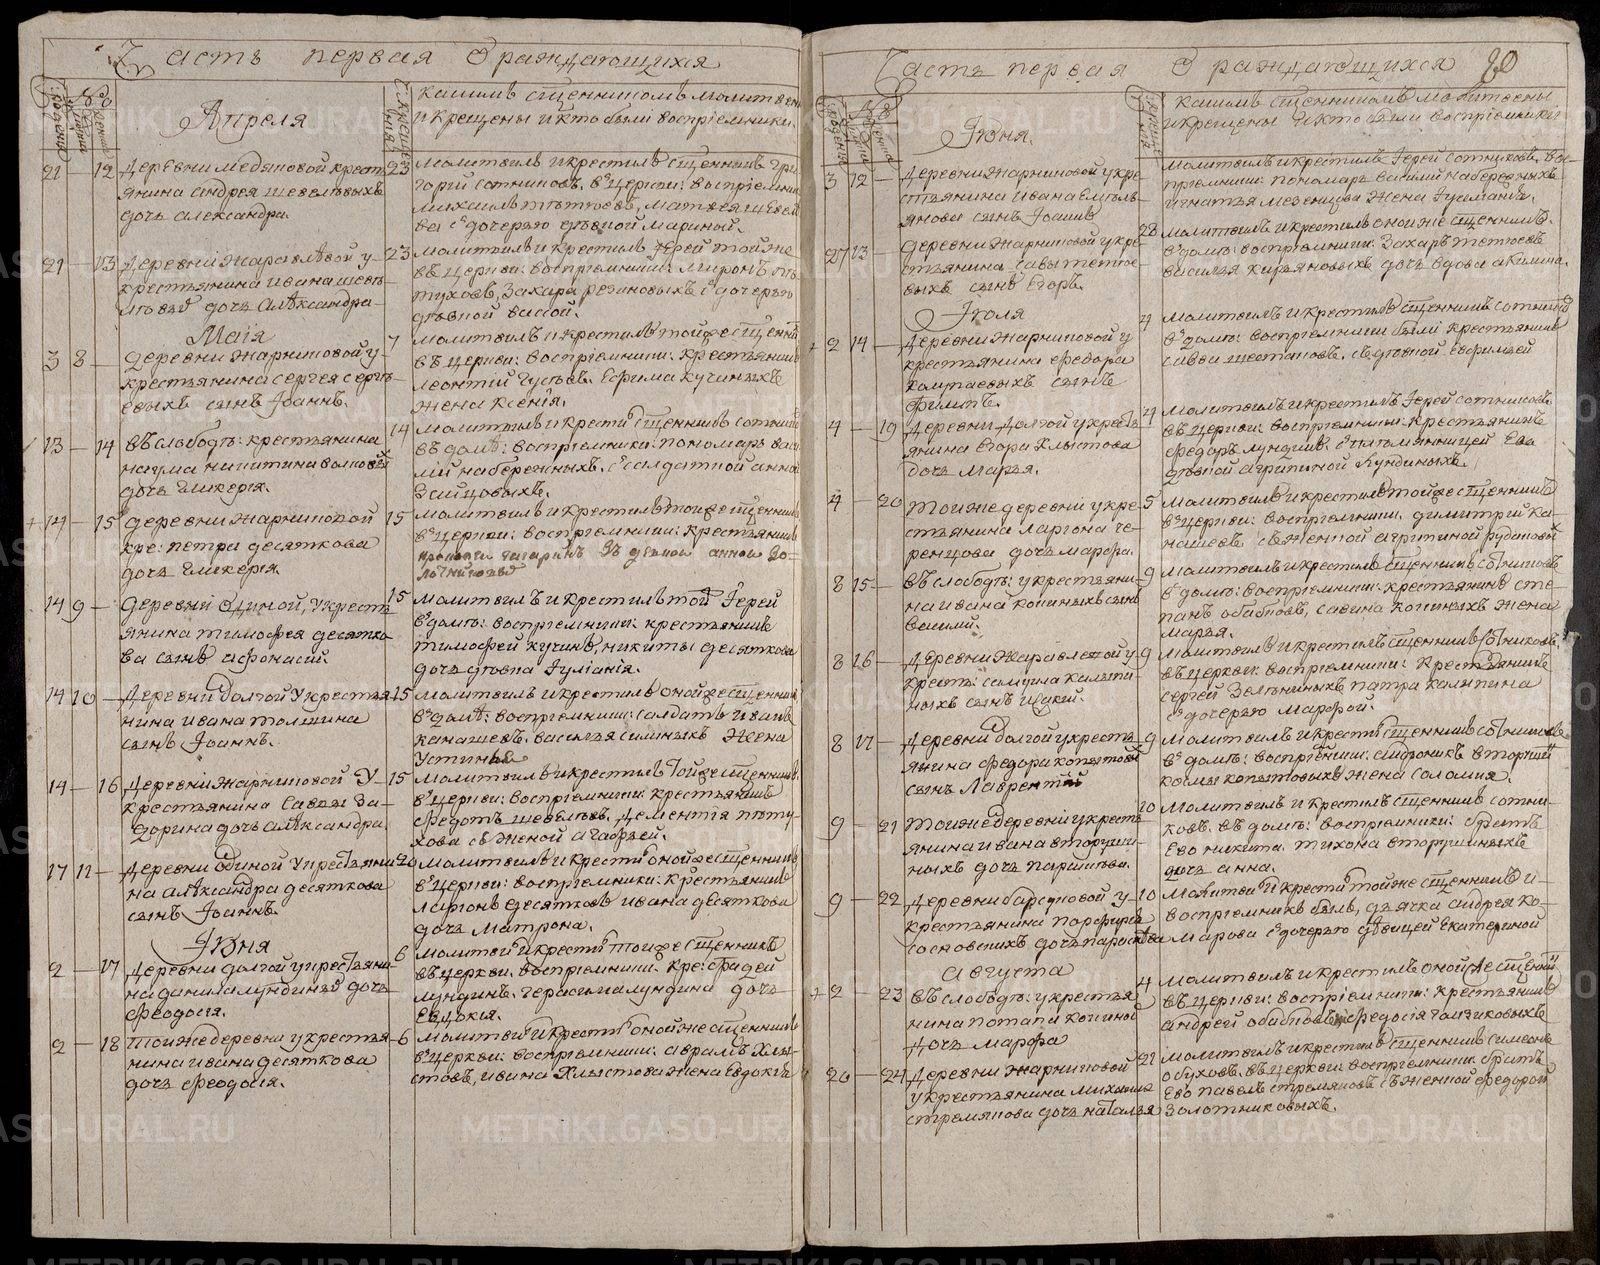 Часть первая О раждающихся
Апреля
какимъ сщенникомъ молитвены
и крещены и кто были воспріемники
21 12 деревни медяковой крест
янина андрея шевелевыхъ
дочь александра.
23 молитвилъ и крестилъ сщенникъ Гри
горій сотниковъ. въ церкви: воспріемники
дочерью девкой Мариной.
21 13 деревни жаравлевой у
крестьянина ивана шеве
левы дочь Александра
23 молитвилъ и крестилъ Іерей той же
въ церкви: воспріемники: Миронъ пе
туховъ, Захара резановыхъ з дочерью
девкой васой.
Маія
3 8 деревни жарниковой у
крестьянина сергея серге
евыхъ сынъ Іоаннъ.
7 молитвилъ и крестилъ тойже сщенни
въ церкви: воспріемники: крестьянинъ
леонтій гусевъ. Ефима кучиныхъ
жена Ксенія.
13 14 въ слободе: крестьянина
наума никитина волковы
дочь гликерія.
14 молитвилъ и крести сщенникъ сотник
въ доме: воспріемники: пономарь васи
лій набережныхъ. с солдаткой анно
Зайцовыхъ.
14 15 деревни жарниковой
кре: петра десяткова
дочь гликерія.
15 молитвилъ и крестилъ тойже сщенникъ
въ церкви: воспріемники: крестьянинъ
14 9 деревни Единой, у крестъ
янина тимофея десятко
ва сынъ афонасій.
15 молитвилъ и крестилъ той Іерей
в доме: воспріемники: крестьянинъ
тимофей кучинъ, никиты десяткова
дочь девка Іуліанія.
14 10 деревни долгой у крестья
нина ивана толшина
сынъ Іоаннъ.
15 молитвилъ и крестилъ онойже сщенник
в доме: воспріемники: солдатъ иванъ
канашевъ. василья силиныхъ жена
Устинья
14 16 деревни жарниковой у
крестьянина Савы За
дорина дочь Александра.
15 молитвилъ и крестилъ тойже сщенникъ.
в церкви: воспріемники: крестьянинъ
Федотъ шевелевъ. дементія пету
хова съ женой агафьей.
17 11 деревни Единой у крестьяни
на александра десяткова
сынъ Іоаннъ.
20 молитвилъ и крести онойже сщенникъ
в церкви: воспріемники: крестьянинъ
Ларіонъ десятковъ ивана десяткова
дочь Матрона.
Іюня
2 17 деревни долгой у крестьяни
на данила лундины дочь
феодосія.
6 молитви и крести тойже сщенникъ
въ церкви. воспріемники. кре: фадей
лундинъ. герасима лундина дочь
Евдокія.
2 18 тойже деревни у крестья
нина ивана десяткова
дочь феодосія.
6 молитви и крести онойже сщенникъ
в церкви: воспріемники: аврамъ Хлы
стовъ, ивана Хлыстова жена Евдокія
Часть первая О раждающихся 20
Іюня.
какимъ сщенникомъ молитвены
и крещены и кто были воспріемники
3 12 деревни жарниковой у кре
стьянина ивана Емель
янова сынъ Іоаннъ
молитвилъ и крестилъ Іерей сотниковъ. вос
пріемники: пономарь василій набережныхъ
игнатья мезенцова жена
27 13 деревни жарниковой у кре
стьянина савы тетюе
выхъ сынъ Егоръ.
28 молитвилъ и крестилъ онойже сщенникъ.
в доме: воспріемники: Захаръ тетюевъ
василья кирьяновыхъ дочь вдова акилина.
Іюля
2 14 деревни жарниковой у
крестьянина федора
колтаевыхъ сынъ
филипъ.
4 молитвилъ и крестилъ сщенникъ сотник
в доме: воспріемники были крестьянинъ
савва шестаковъ. съ девкой Евфимьей
4 19 деревни долгой у кресть
янина Егора хлыстова
дочь Марья.
4 молитвилъ и крестилъ Іерей сотниковъ.
въ церкви: воспріемники: крестьянинъ
федоръ лундинъ. с племянницей Ево
девкой агрипиной лундиныхъ
4 20 тойже деревни у кре
стьянина ларіона че
ренцова дочь марфа.
5 молитвилъ и крестилъ тойже сщенникъ
в церкви: воспріемники. димитрій ка
нашевъ. съ женой агрипиной рудаковой
8 15 въ слободе: у крестьяни
на ивана коғиныхъ сынъ
василій.
9 молитвилъ и крестилъ сщенникъ сотниковъ
в доме: воспріемники: крестьянинъ сте
панъ обабковъ, савина когиныхъ жена
марья.
8 16 деревни жаравлевой у
крестъ: самуила калапи
ныхъ сынъ Исакій.
9 молитвилъ и крестилъ сщенникъ сотниковъ.
въ церкви: воспріемники: Крестьянинъ
сергей петра калапина
с дочерью марфой.
8 17 деревни долгой у кресть
янина федора копытовы
сынъ Лаврентій
9 молитвилъ и крести сщенникъ сотниковъ
в доме: воспріемники: андроникъ вторыгинъ
копытовыхъ жена соломия.
9 21 тойже деревни у кресть
янина ивана вторуши
ныхъ дочь парасковья.
10 молитвилъ и крестилъ сщенникъ сотни
ковъ. въ доме: воспріемники: братъ
Ево никита. тихона вторушиныхъ
дочь анна.
9 22 деревни барсуковой у
крестьянина порфира
сосновскихъ дочь парасковья
10 молитви и крести тойже сщенникъ и
воспріемникъ былъ, дьячка андрея ко
марова с дочерью девицей Екатериной
Августа
2 23 въ слободе: у крестья
нина потапа когина
дочь марфа
4 молитвилъ и крестилъ онойже сщенни
въ церкви: воспріемники: крестьянинъ
андрей обабковъ
20 24 деревни жарниковой
у крестьянина михаила
стремякова дочь наталья
21 молитвилъ и крестилъ сщенникъ симеонъ
обуховъ. въ церкви: воспріемники: братъ
Ево павелъ стремяковъ съ женной федорой
золотниковыхъ.